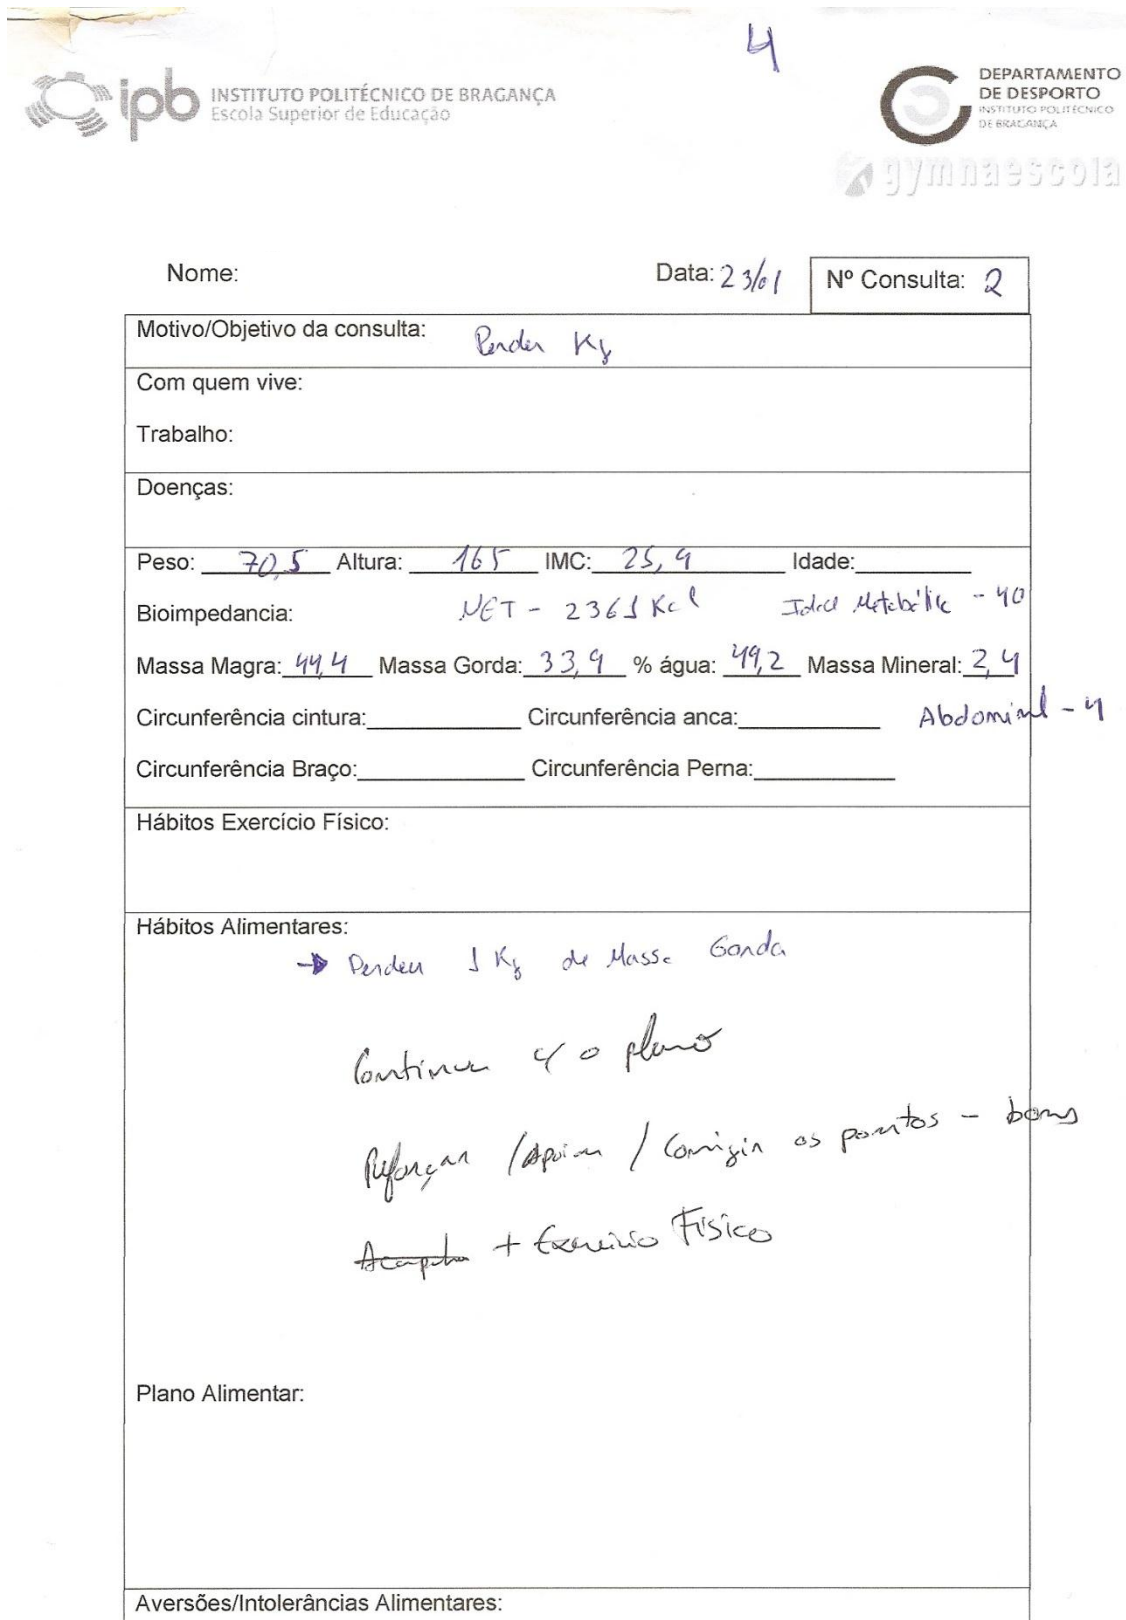 4
ipb INSTITUTO POLITÉCNICO DE BRAGANÇA
Escola Superior de Educação
DEPARTAMENTO
DE DESPORTO
INSTITUTO POLITÉCNICO
DE BRAGANÇA
gymnaescola
Nome: Data: 23/01 Nº Consulta: 2
Motivo/Objetivo da consulta: Perder Kg
Com quem vive:
Trabalho:
Doenças:
Peso: 70,5 Altura: 165 IMC: 25,9 Idade:
Bioimpedancia: NET - 2361 Kcal Idade Metabólica - 40
Massa Magra: 44,4 Massa Gorda: 33,9 % água: 49,2 Massa Mineral: 2,4
Circunferência cintura: Circunferência anca: Abdominal - 4
Circunferência Braço: Circunferência Perna:
Hábitos Exercício Físico:
Hábitos Alimentares:
→ Perdeu 1 Kg de Massa Gorda
Continuar c/ o plano
Reforçar / Apoiar / Corrigir os pontos - bons
+ Exercício Físico
Plano Alimentar:
Aversões/Intolerâncias Alimentares: